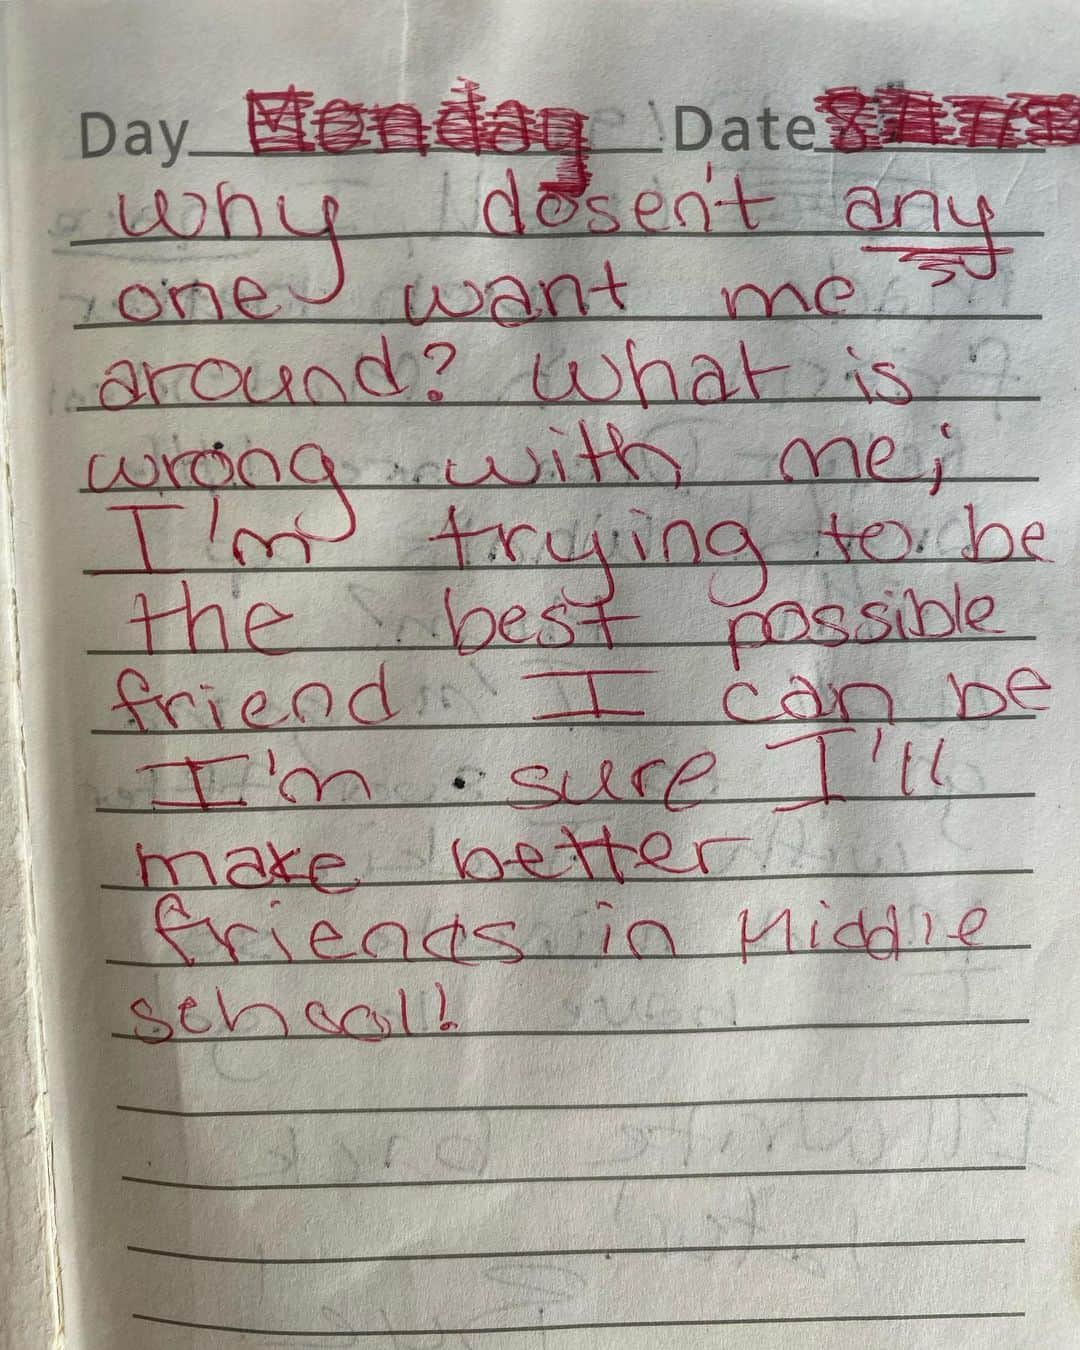 Day Monday Date
Why dosen't any
one want me
around? What is
wrong with me;
I'm trying to be
the best possible
friend I can be
I'm sure I'll
make better
friends in Middle
school!